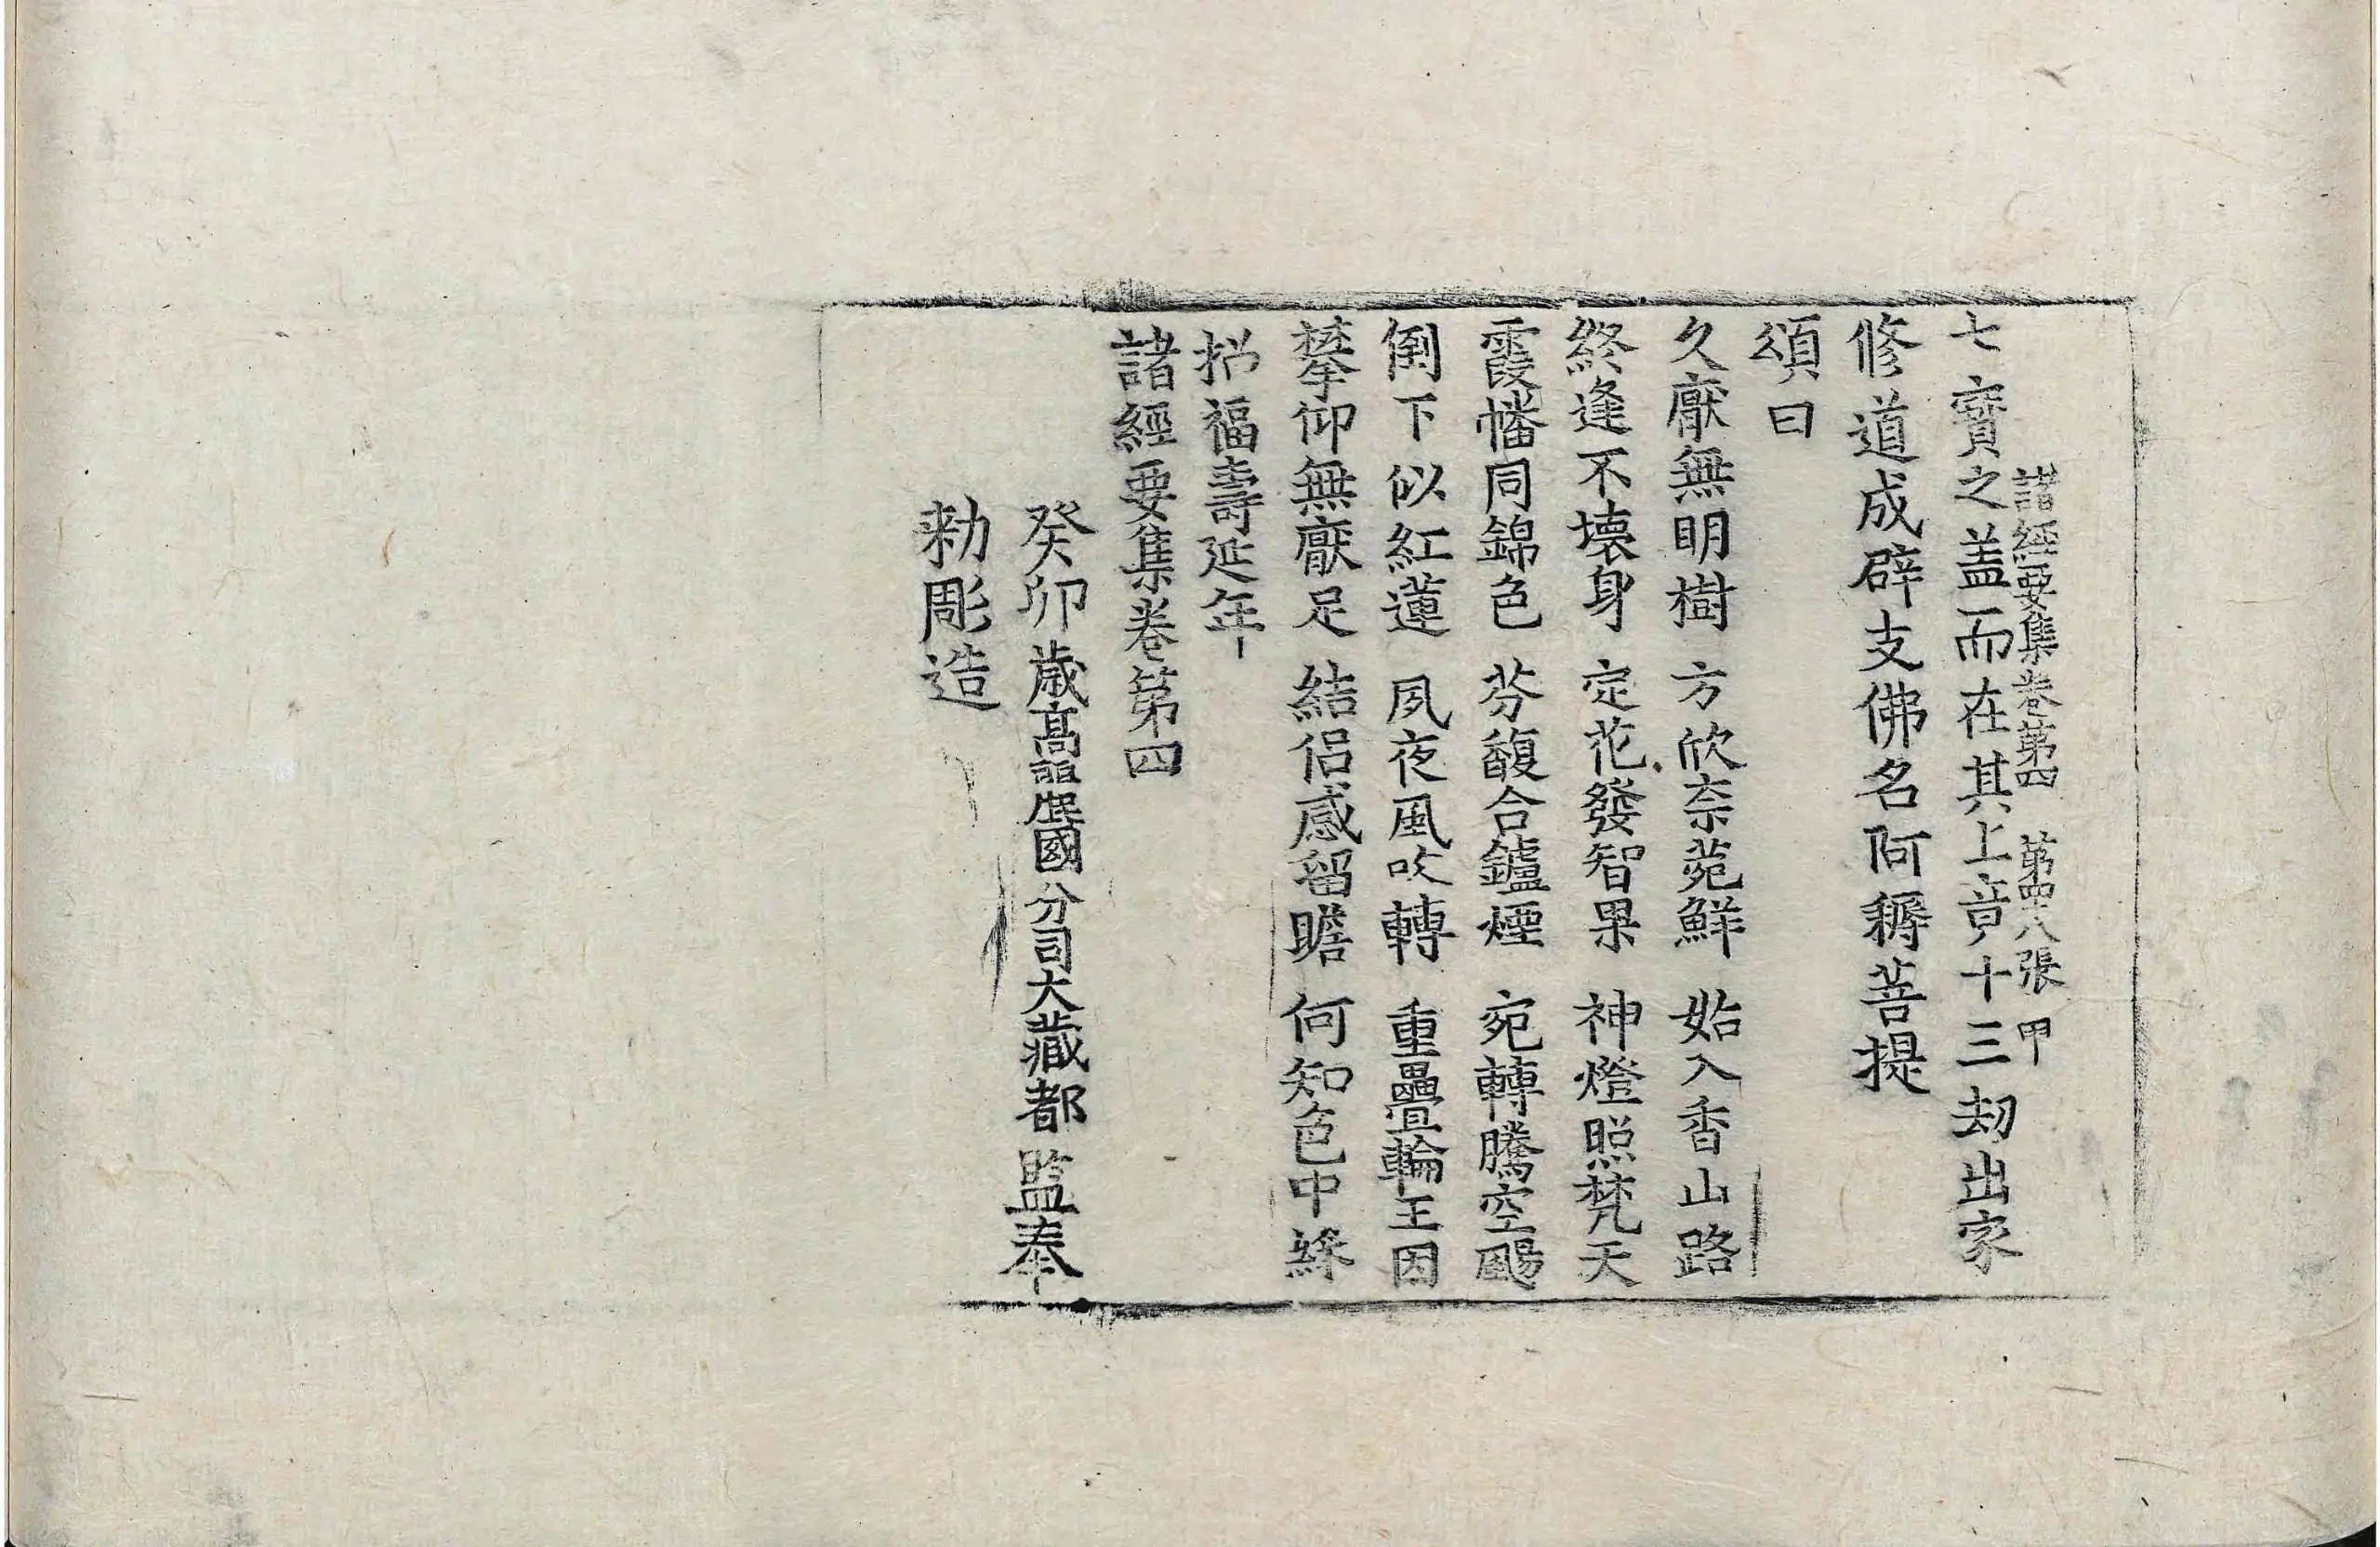 七寶之盖而在其上竟十三劫出家
諸經要集卷第四 第四十八張 甲
修道成辟支佛名阿耨菩提
頌曰
久猒無明樹 方欣柰菀鮮 始入香山路
終逢不壞身 定花發智果 神燈照梵天
霞幡同錦色 芬馥合鑪煙 宛轉騰空颺
倒下似紅蓮 夙夜風吹轉 重疊輪王因
攀仰無猒足 結侶感留瞻 何知色中綵
招福壽延年
諸經要集卷第四
癸卯歳髙麗國分司大藏都監奉
勑彫造